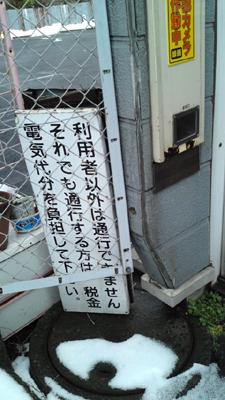 カメラ
作動中
利用者以外は通行できません
それでも通行する方は、税金
電気代分を負担して下さい。